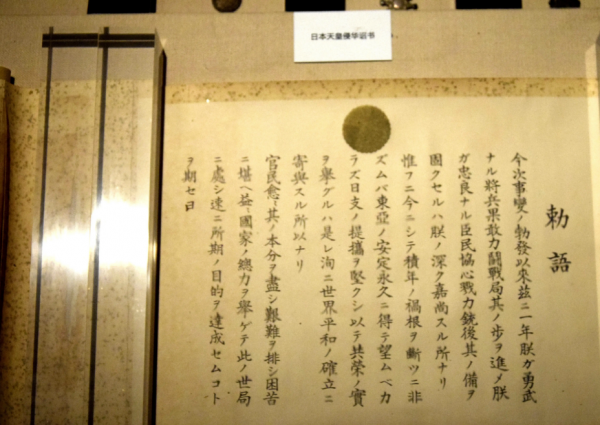 日本天皇侵华诏书
勅語
今次事變ノ勃發以來茲ニ一年朕ガ勇武
ナル將兵果敢力鬪戰局其ノ歩ヲ進メ朕
ガ忠良ナル臣民協心戮力銃後其ノ備ヲ
固クセルハ朕ノ深ク嘉尚スル所ナリ
惟フニ今ニシテ積年ノ禍根ヲ斷ツニ非
ズムバ東亞ノ安定永久ニ得テ望ムベカ
ラズ日支ノ提攜ヲ堅クシ以テ共榮ノ實
ヲ擧グルハ是レ洵ニ世界平和ノ確立ニ
寄與スル所以ナリ
官民愈〻其ノ本分ヲ盡シ艱難ヲ排シ困苦
ニ堪ヘ益〻國家ノ總力ヲ擧ゲテ此ノ世局
ニ處シ速ニ所期ノ目的ヲ達成セムコト
ヲ期セヨ